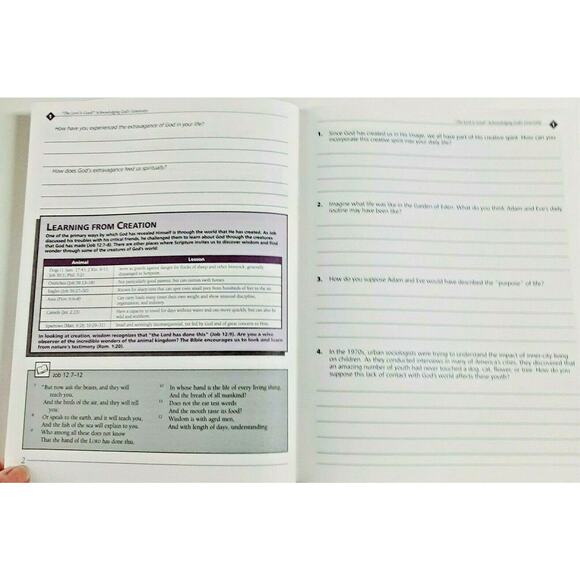 "The Lord Is Good" Acknowledging God's Generosity
How have you experienced the extravagance of God in your life?
How does God's extravagance feed us spiritually?
LEARNING FROM CREATION
One of the primary ways by which God has revealed Himself is through the world that He has created. As Job
discussed his troubles with his critical friends, he challenged them to learn about God through the creatures
that God has made (Job 12:7-8). There are other places where Scripture invites us to discover wisdom and find
wonder through some of the creatures of God's world:
Animal Lesson
Dogs (1 Sam. 17:43; 2 Kin. 8:13; Serve as guards against danger for flocks of sheep and other livestock, generally
Job 30:1; Phil. 3:2) disparaged in Scripture.
Ostriches (Job 39:13-18) Not particularly good parents, but can outrun swift horses.
Eagles (Job 39:27-30) Known for sharp eyes that can spot even small prey from hundreds of feet in the air.
Ants (Prov. 6:6-8) Can carry loads many times their own weight and show unusual discipline,
organization, and industry.
Camels (Jer. 2:23) Have a capacity to travel for days without water and can move quickly, but can also be
wild and stubborn.
Sparrows (Matt. 6:26; 10:29-31) Small and seemingly inconsequential, yet fed by God and of great concern to Him.
In looking at creation, wisdom recognizes that "the Lord has done this" (Job 12:9). Are you a wise
observer of the incredible wonders of the animal kingdom? The Bible encourages us to look and learn
from nature's testimony (Rom. 1:20).
Job 12:7-12
7 "But now ask the beasts, and they will
teach you,
And the birds of the air, and they will tell
you;
8 Or speak to the earth, and it will teach you,
And the fish of the sea will explain to you.
9 Who among all these does not know
That the hand of the LORD has done this,
10 In whose hand is the life of every living thing,
And the breath of all mankind?
11 Does not the ear test words
And the mouth taste its food?
12 Wisdom is with aged men,
And with length of days, understanding
2
"The Lord Is Good" Acknowledging God's Generosity
1. Since God has created us in His image, we all have part of His creative spirit. How can you
incorporate this creative spirit into your daily life?
2. Imagine what life was like in the Garden of Eden. What do you think Adam and Eve's daily
routine may have been like?
3. How do you suppose Adam and Eve would have described the "purpose" of life?
4. In the 1970s, urban sociologists were trying to understand the impact of inner-city living
on children. As they conducted interviews in many of America's cities, they discovered that
an amazing number of youth had never touched a dog, cat, flower, or tree. How do you
suppose this lack of contact with God's world affects these youth?